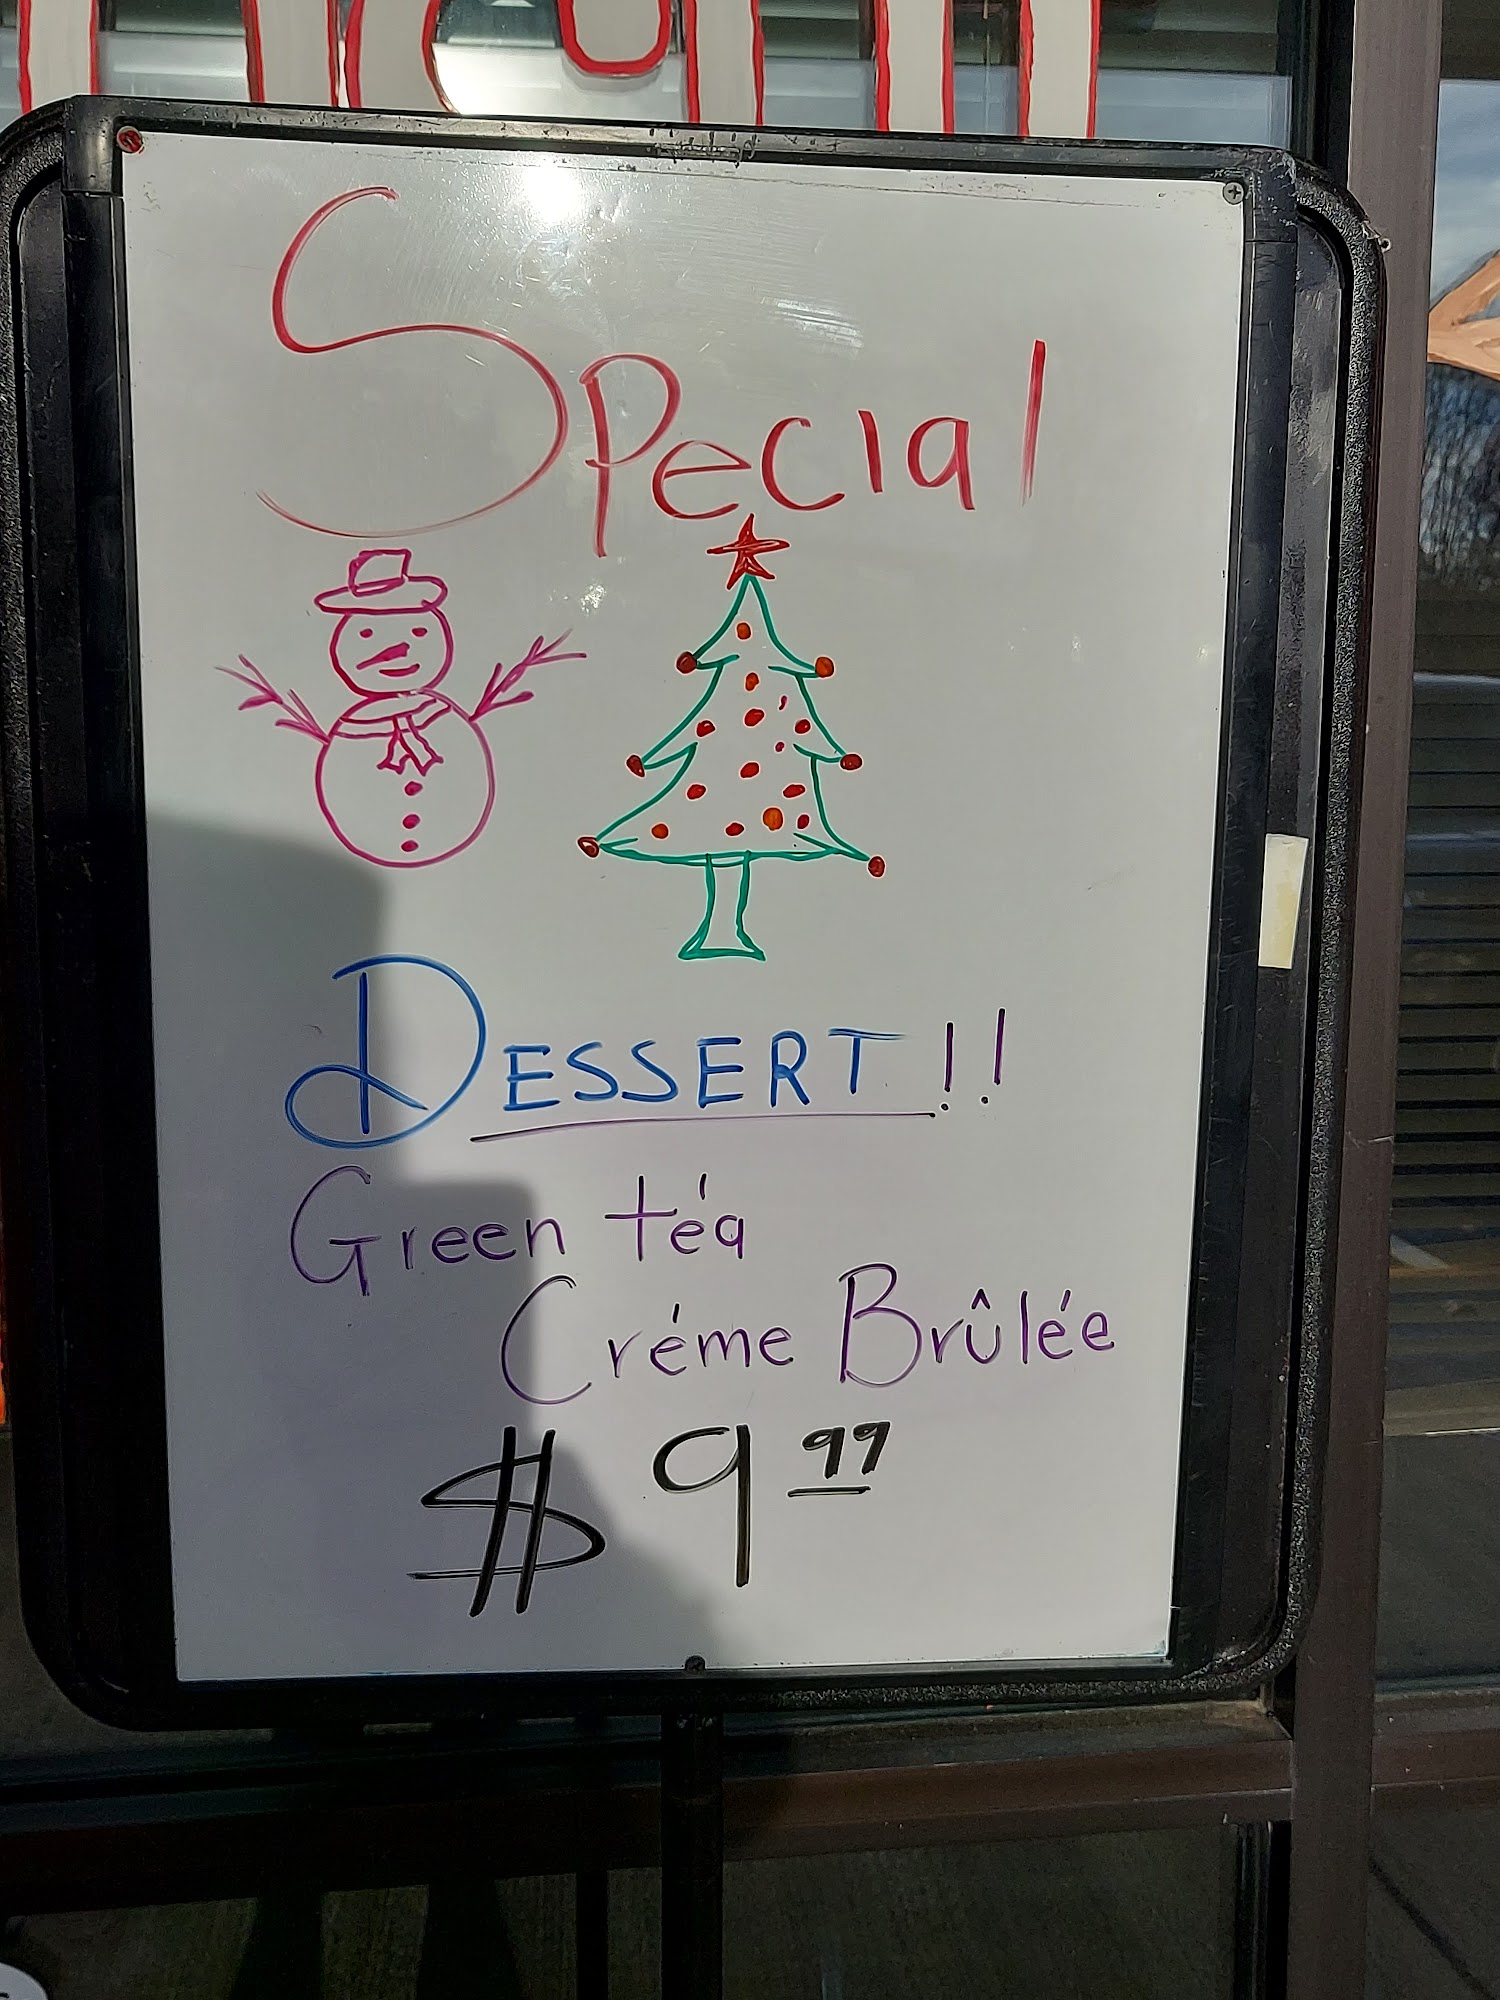 Special
DESSERT!!
Green téa
Créme Brûlée
$ 9 99